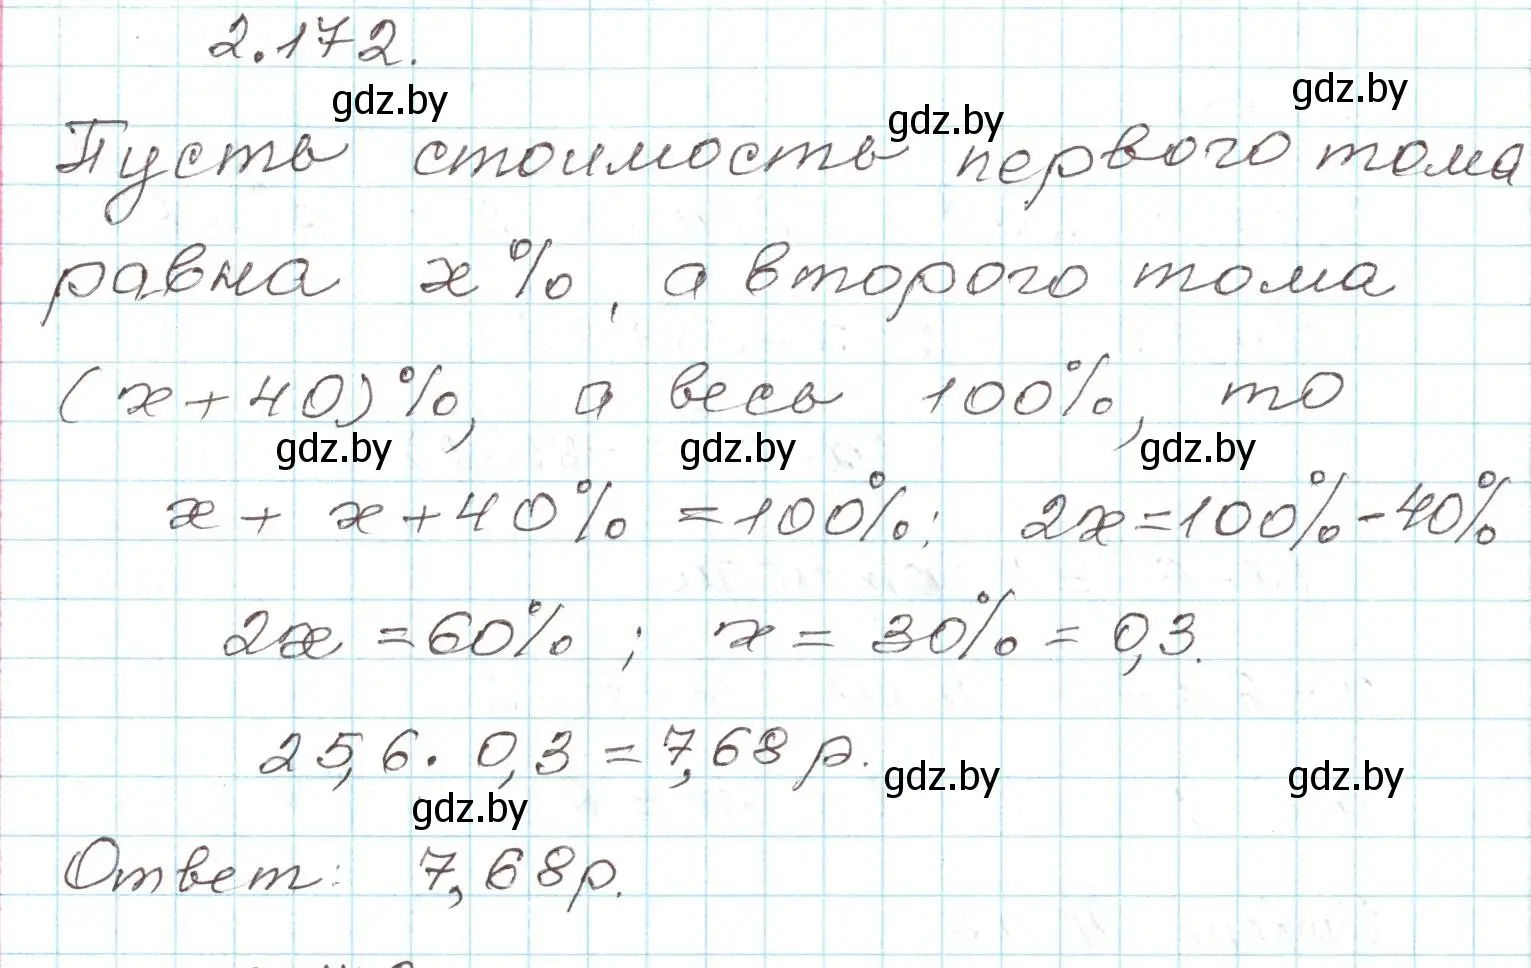 2.172.
gdz.by gdz.by gdz.by
Пусть стоимость первого тома
равна x%, а второго тома
(x+40)%, а весь 100%, то
gdz.by gdz.by gdz.by
x + x + 40% = 100%; 2x = 100% - 40%
2x = 60%; x = 30% = 0,3.
25,6 · 0,3 = 7,68 р.
gdz.by gdz.by gdz.by
Ответ: 7,68 р.